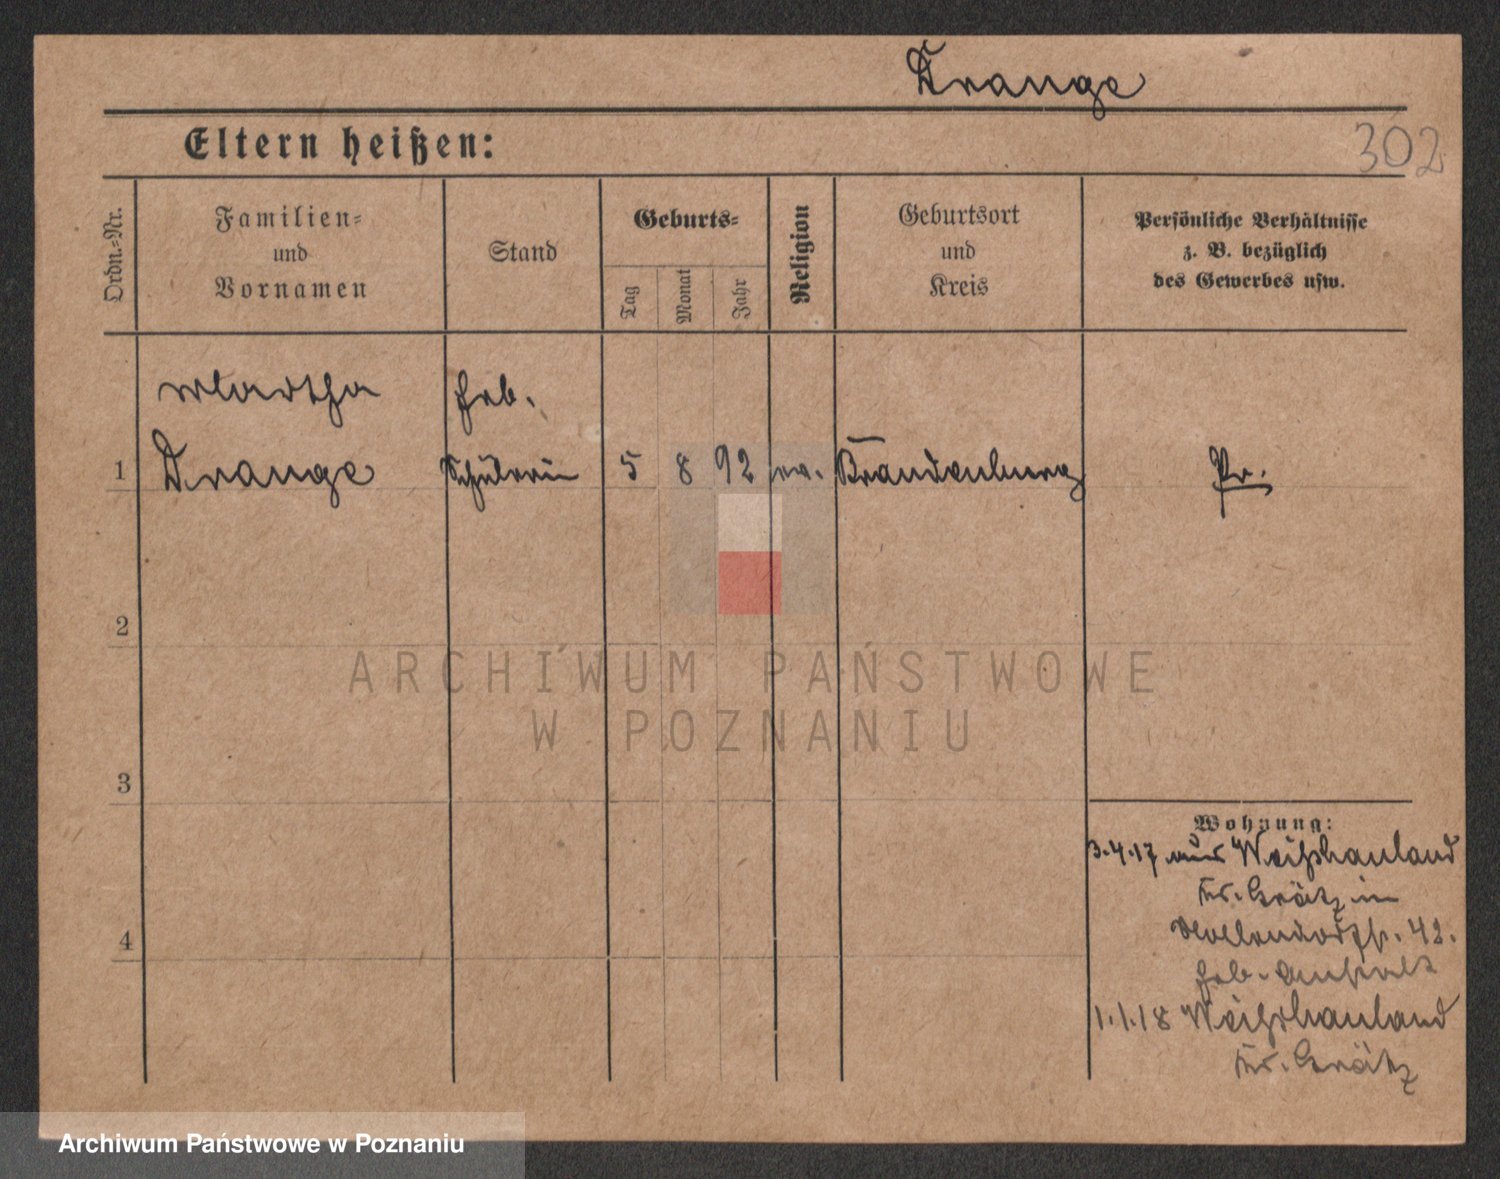 Drange
Eltern heißen:
302
Ordn.=Nr.
Familien=
und
Vornamen
Stand
Geburts=
Tag
Monat
Jahr
Religion
Geburtsort
und
Kreis
Persönliche Verhältnisse
z. B. bezüglich
des Gewerbes usw.
Martha
Heb.
1 Drange Schülerin 5 8 92 ev. Brandenburg Pr.
2
3
4
Wohnung:
3.4.17 aus Weißhauland
Kr. Grätz in
42.
Heb. Anstalt
1.1.18 Weißhauland
Kr. Grätz
ARCHIWUM PAŃSTWOWE
W POZNANIU
Archiwum Państwowe w Poznaniu